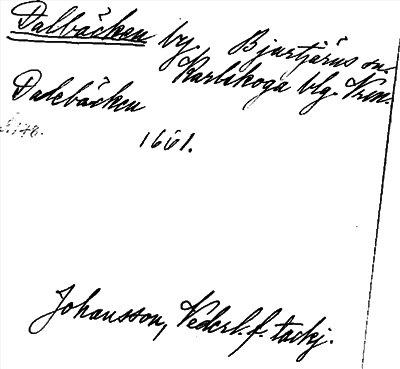 Dalbäcken by Bjurtjärns sn.
Karlskoga blg. Vrm.
Dalebäcken
1601.
Johansson, Vederl. f. tackj.